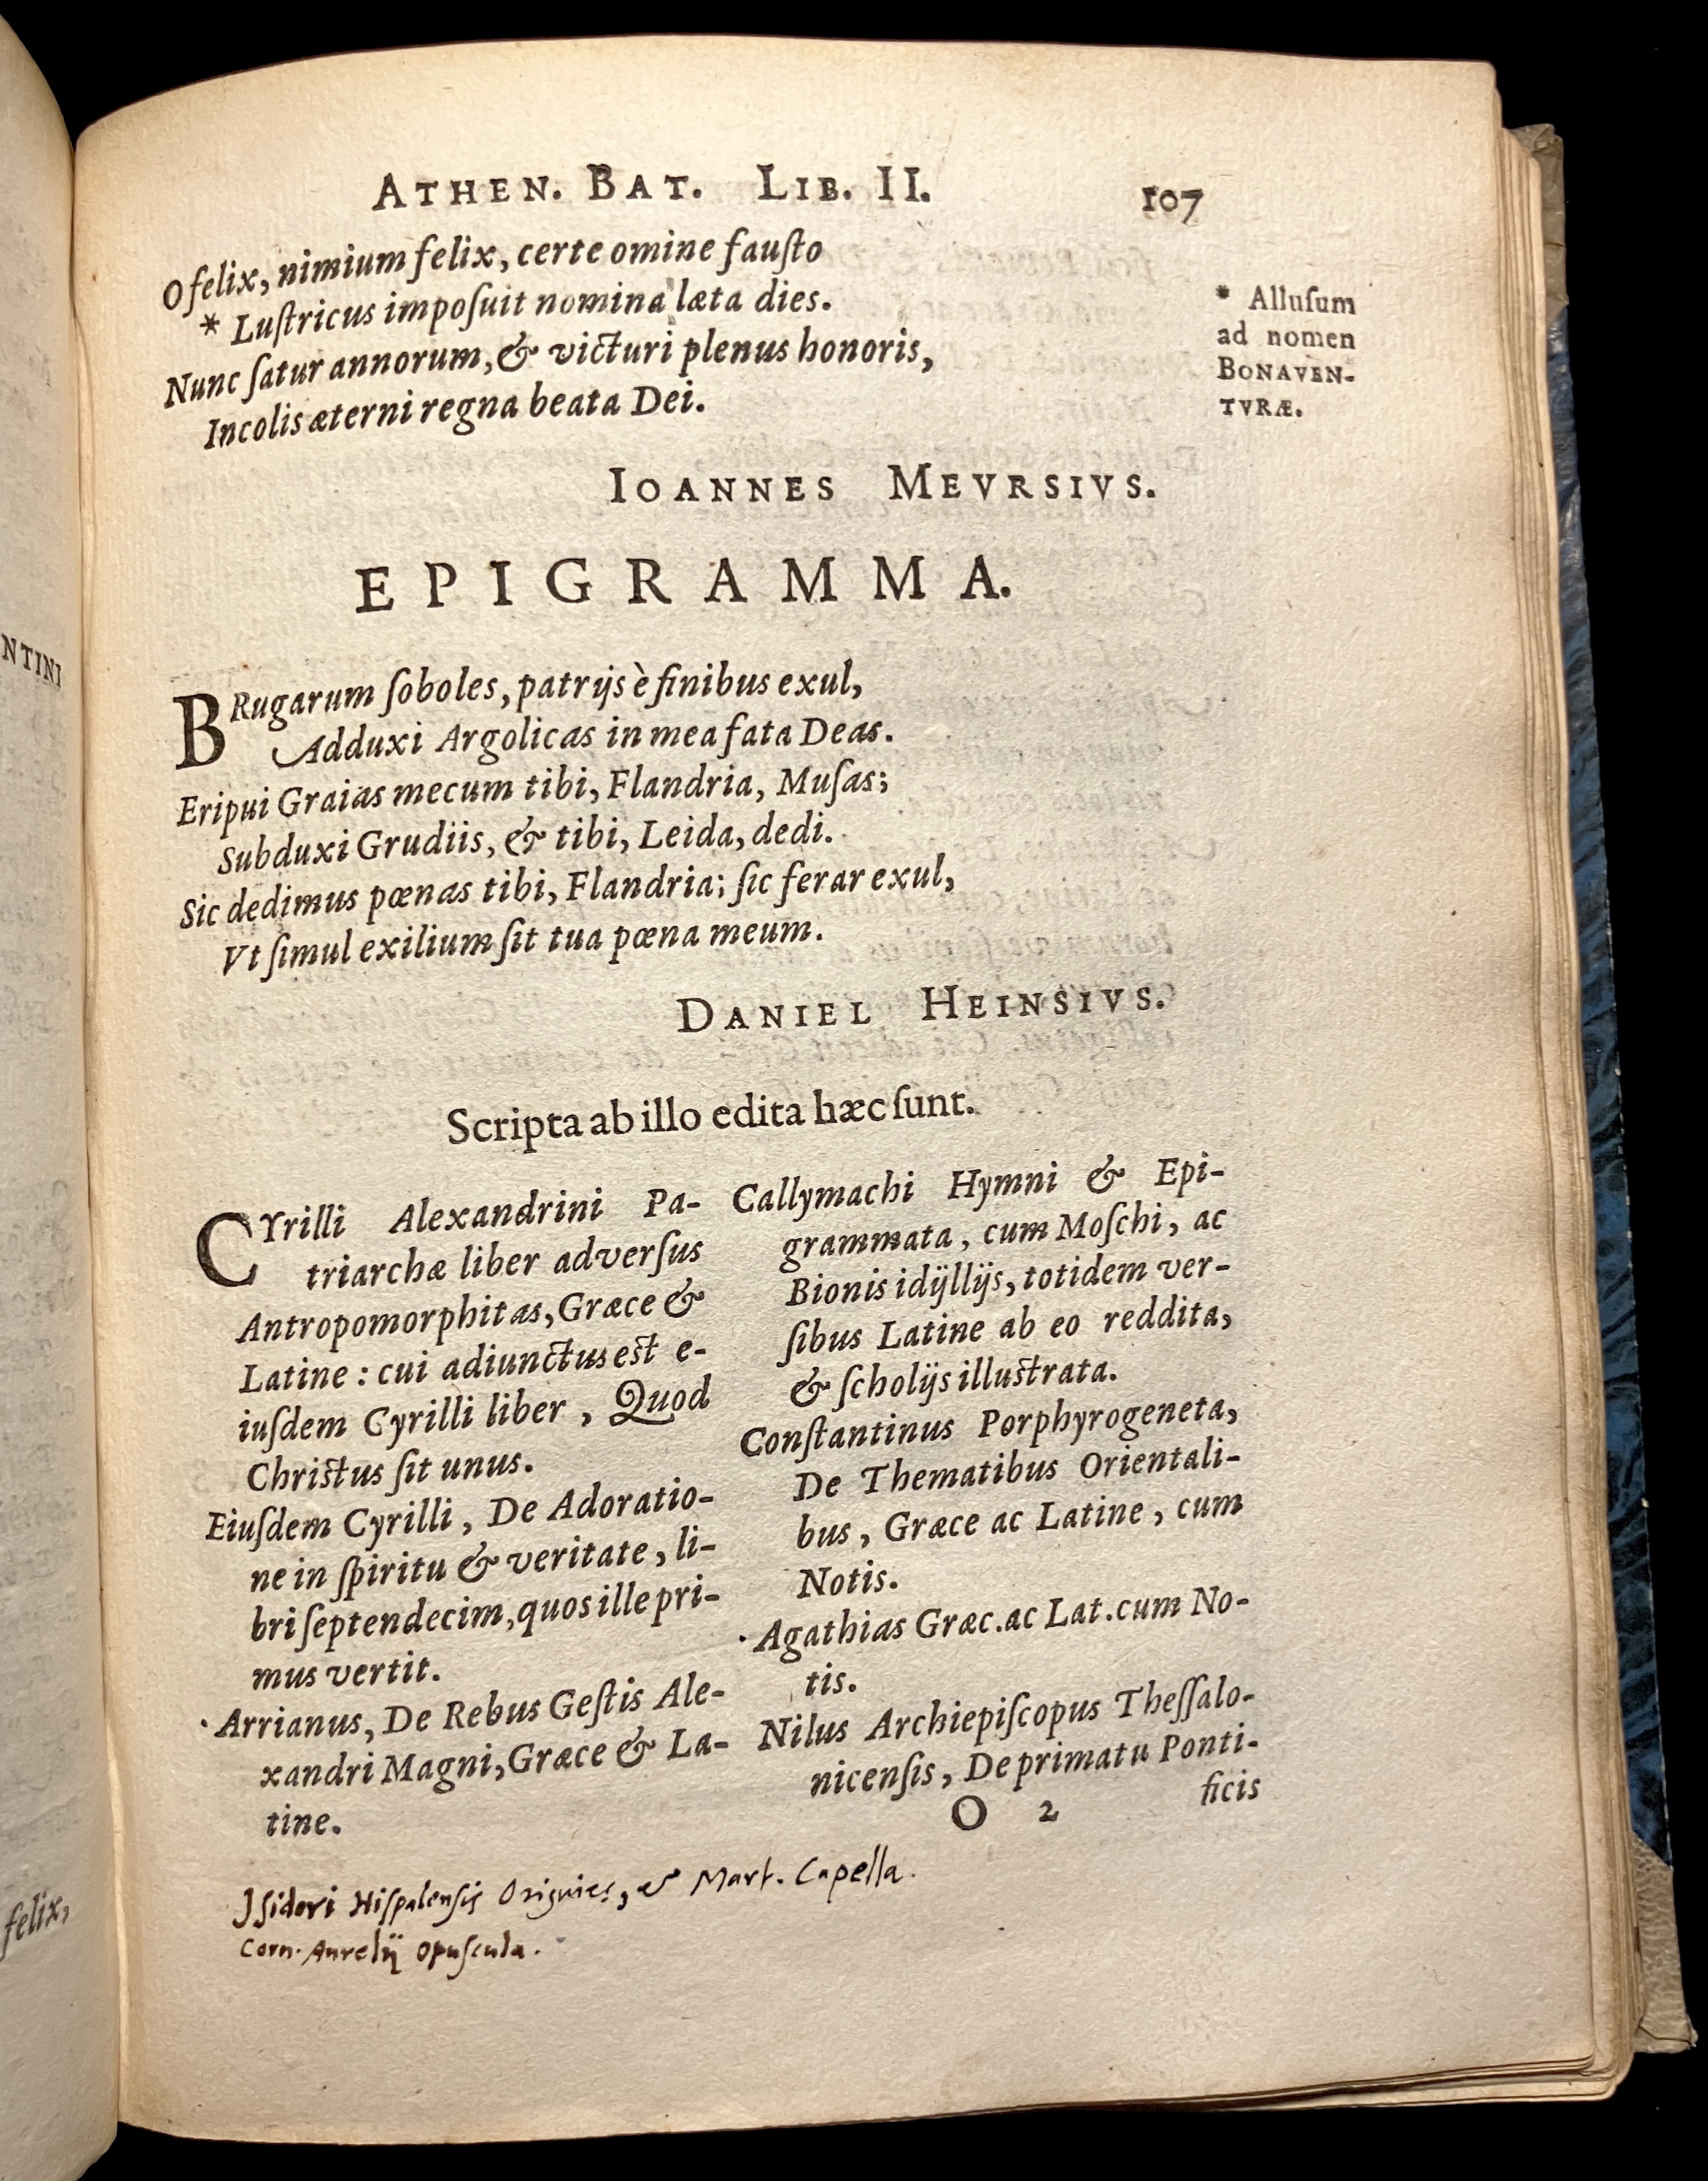 ATHEN. BAT. LIB. II. 107
O felix, nimium felix, certe omine fauſto
* Luſtricus impoſuit nomina læta dies.
Nunc ſatur annorum, & victuri plenus honoris,
Incolis æterni regna beata Dei.
* Alluſum
ad nomen
BONAVEN-
TVRÆ.
IOANNES MEVRSIVS.
EPIGRAMMA.
BRugarum ſoboles, patrijs è finibus exul,
Adduxi Argolicas in mea fata Deas.
Eripui Graias mecum tibi, Flandria, Muſas;
Subduxi Grudiis, & tibi, Leida, dedi.
Sic dedimus pœnas tibi, Flandria; ſic ferar exul,
Vt ſimul exilium ſit tua pœna meum.
DANIEL HEINSIVS.
Scripta ab illo edita hæc ſunt.
CYrilli Alexandrini Pa-
triarchæ liber adverſus
Antropomorphitas, Græce &
Latine : cui adiunctus est e-
iuſdem Cyrilli liber , Quod
Christus ſit unus.
Eiuſdem Cyrilli , De Adoratio-
ne in ſpiritu & veritate , li-
bri ſeptendecim, quos ille pri-
mus vertit.
· Arrianus, De Rebus Geſtis Ale-
xandri Magni, Græce & La-
tine.
Callymachi Hymni & Epi-
grammata , cum Moſchi , ac
Bionis idÿllijs, totidem ver-
ſibus Latine ab eo reddita,
& ſcholijs illustrata.
Conſtantinus Porphyrogeneta,
De Thematibus Orientali-
bus , Græce ac Latine , cum
Notis.
· Agathias Græc. ac Lat. cum No-
tis.
Nilus Archiepiſcopus Theſſalo-
nicenſis , De primatu Ponti-
O 2 ficis
Iſidori Hiſpalenſis Origines, & Mart. Capella.
Corn. Aurelÿ opuſcula.
NTINI
felix,